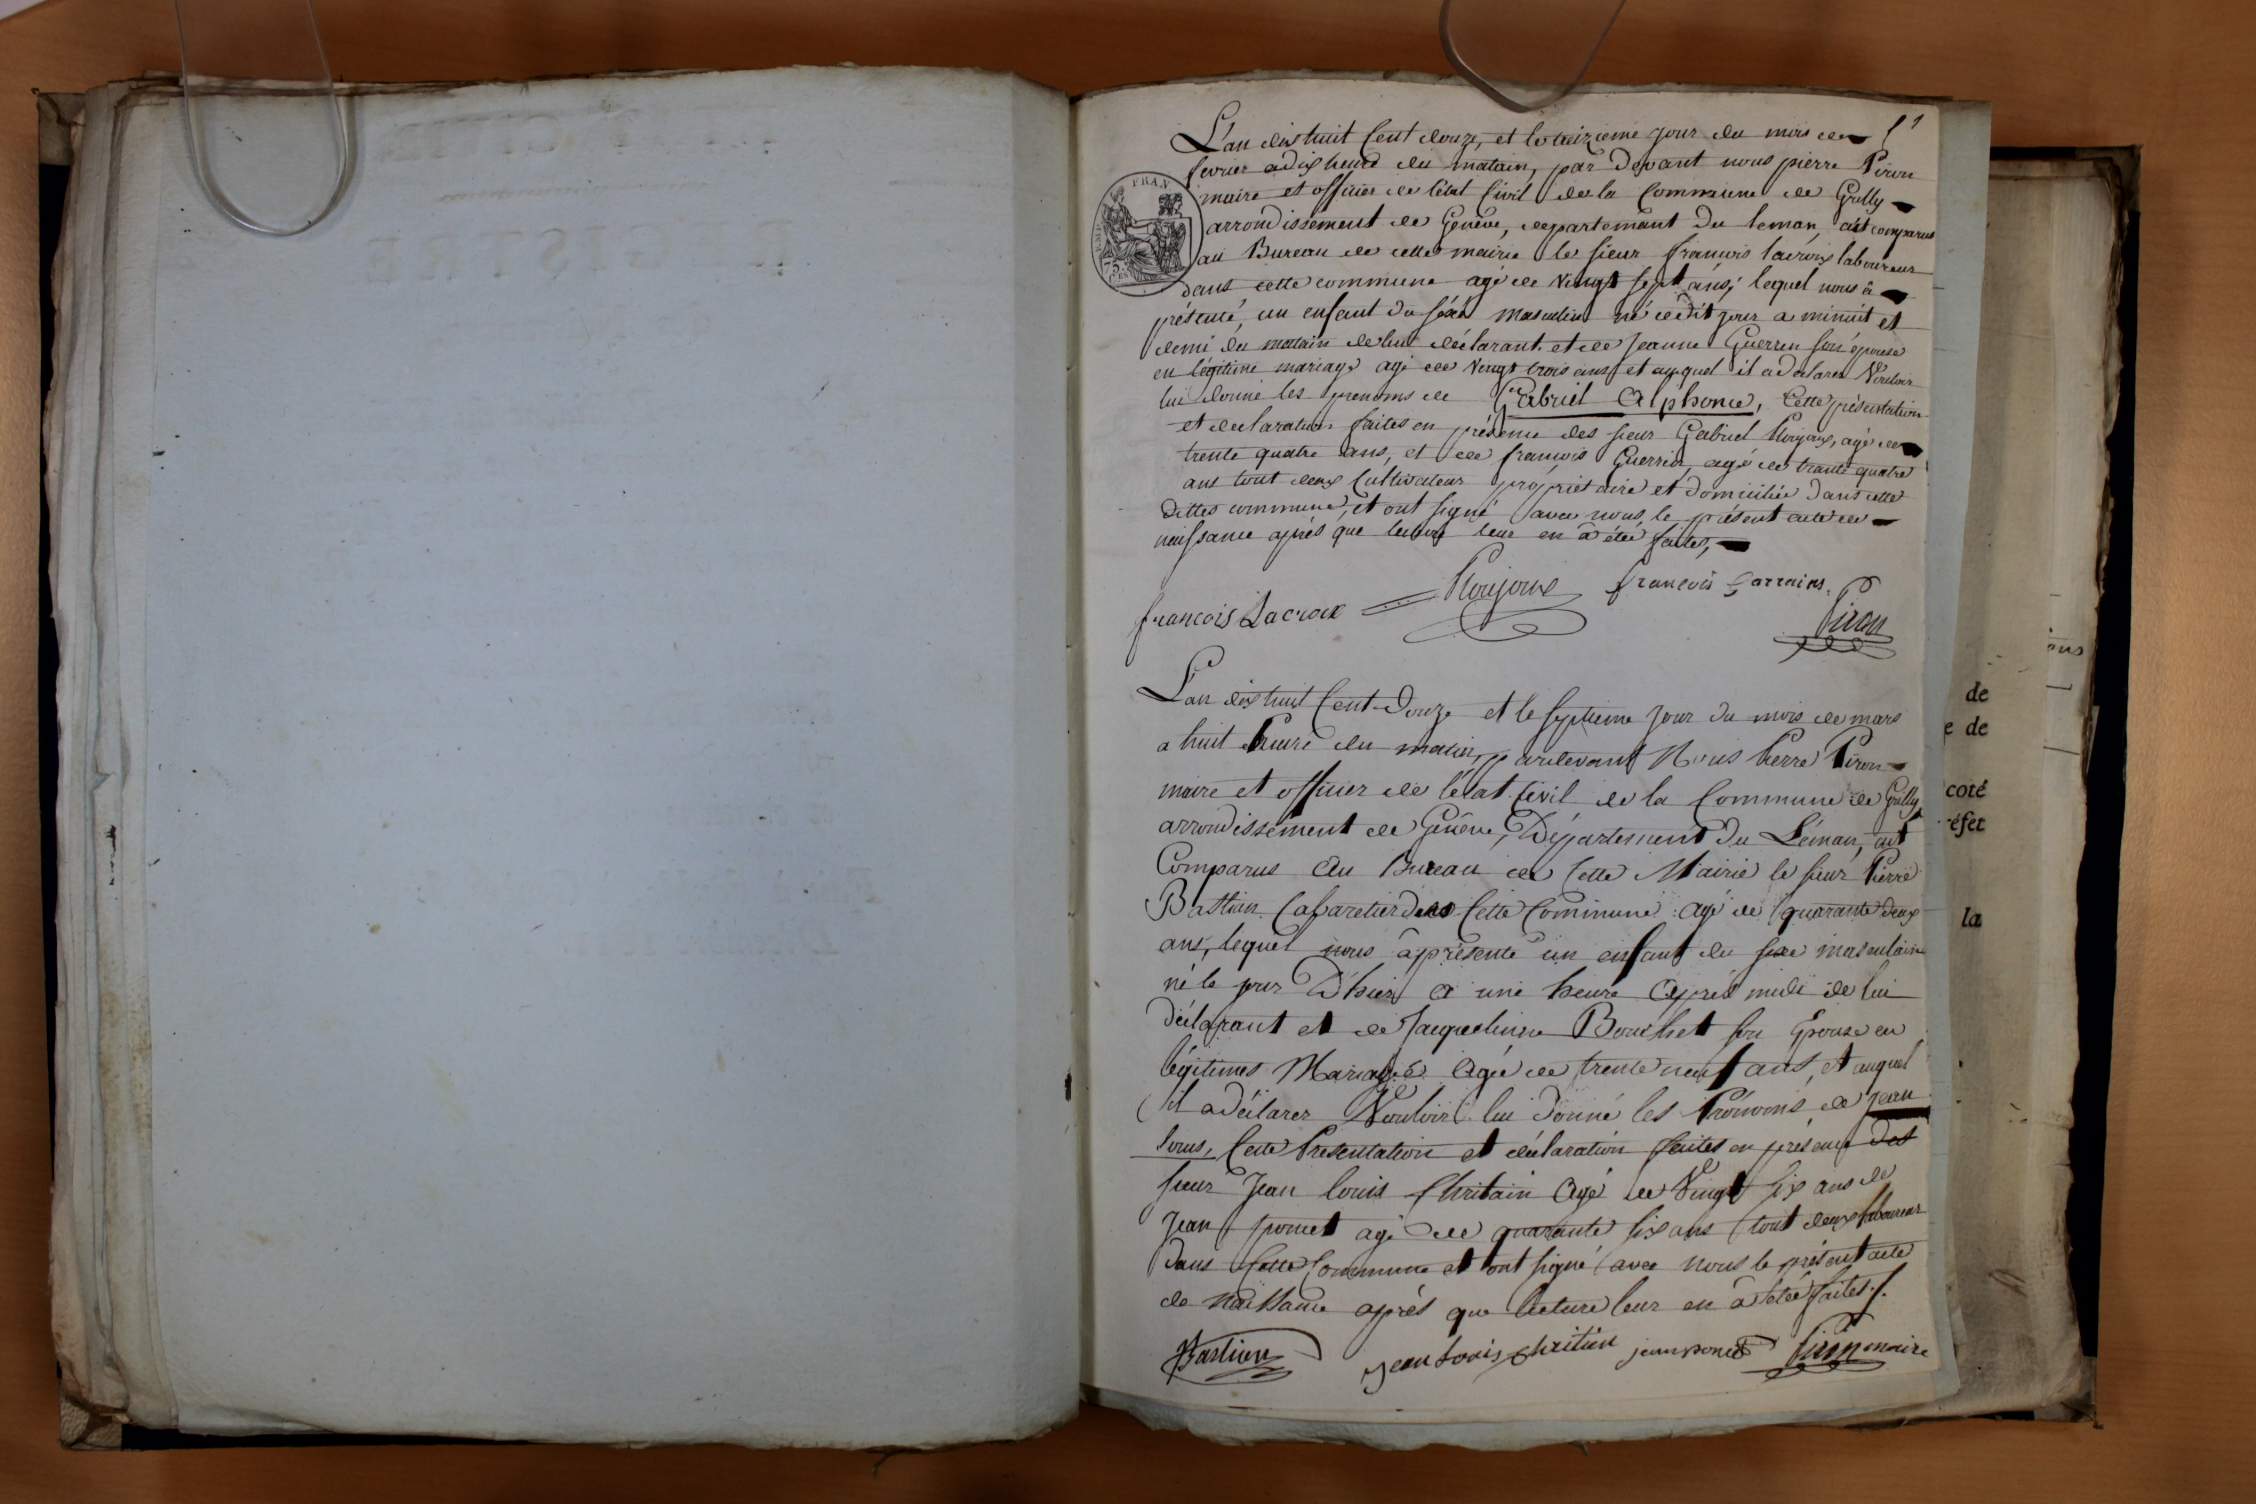 1
L'an dix huit Cent douze, et le treizieme jour du mois de
fevrier a dix heure du matain, par devant nous pierre Piron
maire et officier de l'état Civil de la Commune de Grilly
arrondissement de Genève, departemant Du leman, ast comparus
au Bureau de cette mairie le sieur francois lacroix laboureur
dans cette commune agé de Vingt sept ans, lequel nous â
présenté, un enfant du séxe masculin né cedit jour a minuit et
demi du matain de lui déclarant et de Jeanne Guerren son épouse
en légitime mariage agé de Vingt trois ans et auquel il a declarer Vouloir
lui donné les prenoms de Gabriel Alphonce, Cette présentation
et declaration faites en présence des sieur Gabriel Roujoux, agé de
trente quatre ans, et de francois Guerrin, agé de trante quatre
ans tout deux Cultivateur propriétaire et domicilié dans cette
dittes commune, et ont signé avec nous le présent acte de
naissance aprés que lecture leur en â étéé faites,
francois Lacroix Roujoux francois Garrains
Piron
L'an dix huit Cent Douze et le septieme jour du mois de mars
a huit heure du matin, pardevant Nous Pierre Piron
maire et officier de l'état Civil de la Commune de Grilly
arrondissement de Genêve, Département Du Léman, ast
Comparus Au Bureau de Cette Mairie le sieur Pierre
Bastian Cabaretier dans Cette Commune agé de quarante deux
ans, lequel nous â présenté un enfant du sexe masculain
né le jour D'hier a une heure Aprés midi de lui
déclarant et de Jacquelinne Bouchet son Epouse en
légitimes Mariage Agée de trente neuf ans, et auquel
il a déclarer Vouloir lui donné les Prénoms de Jean
louis, Cette Présentation et déclaration faites en présence des
sieur Jean louis Chritain Agé de Vingt six ans de
Jean ponet agé de quarante six ans tout deux laboureur
dans Cette Commune et ont signé avec nous le présent acte
de naissance aprés que lecture leur en â étéé faites.
Bastian Jean Louis Chritien jean ponet Piron maire
de
e de
coté
réfet
la